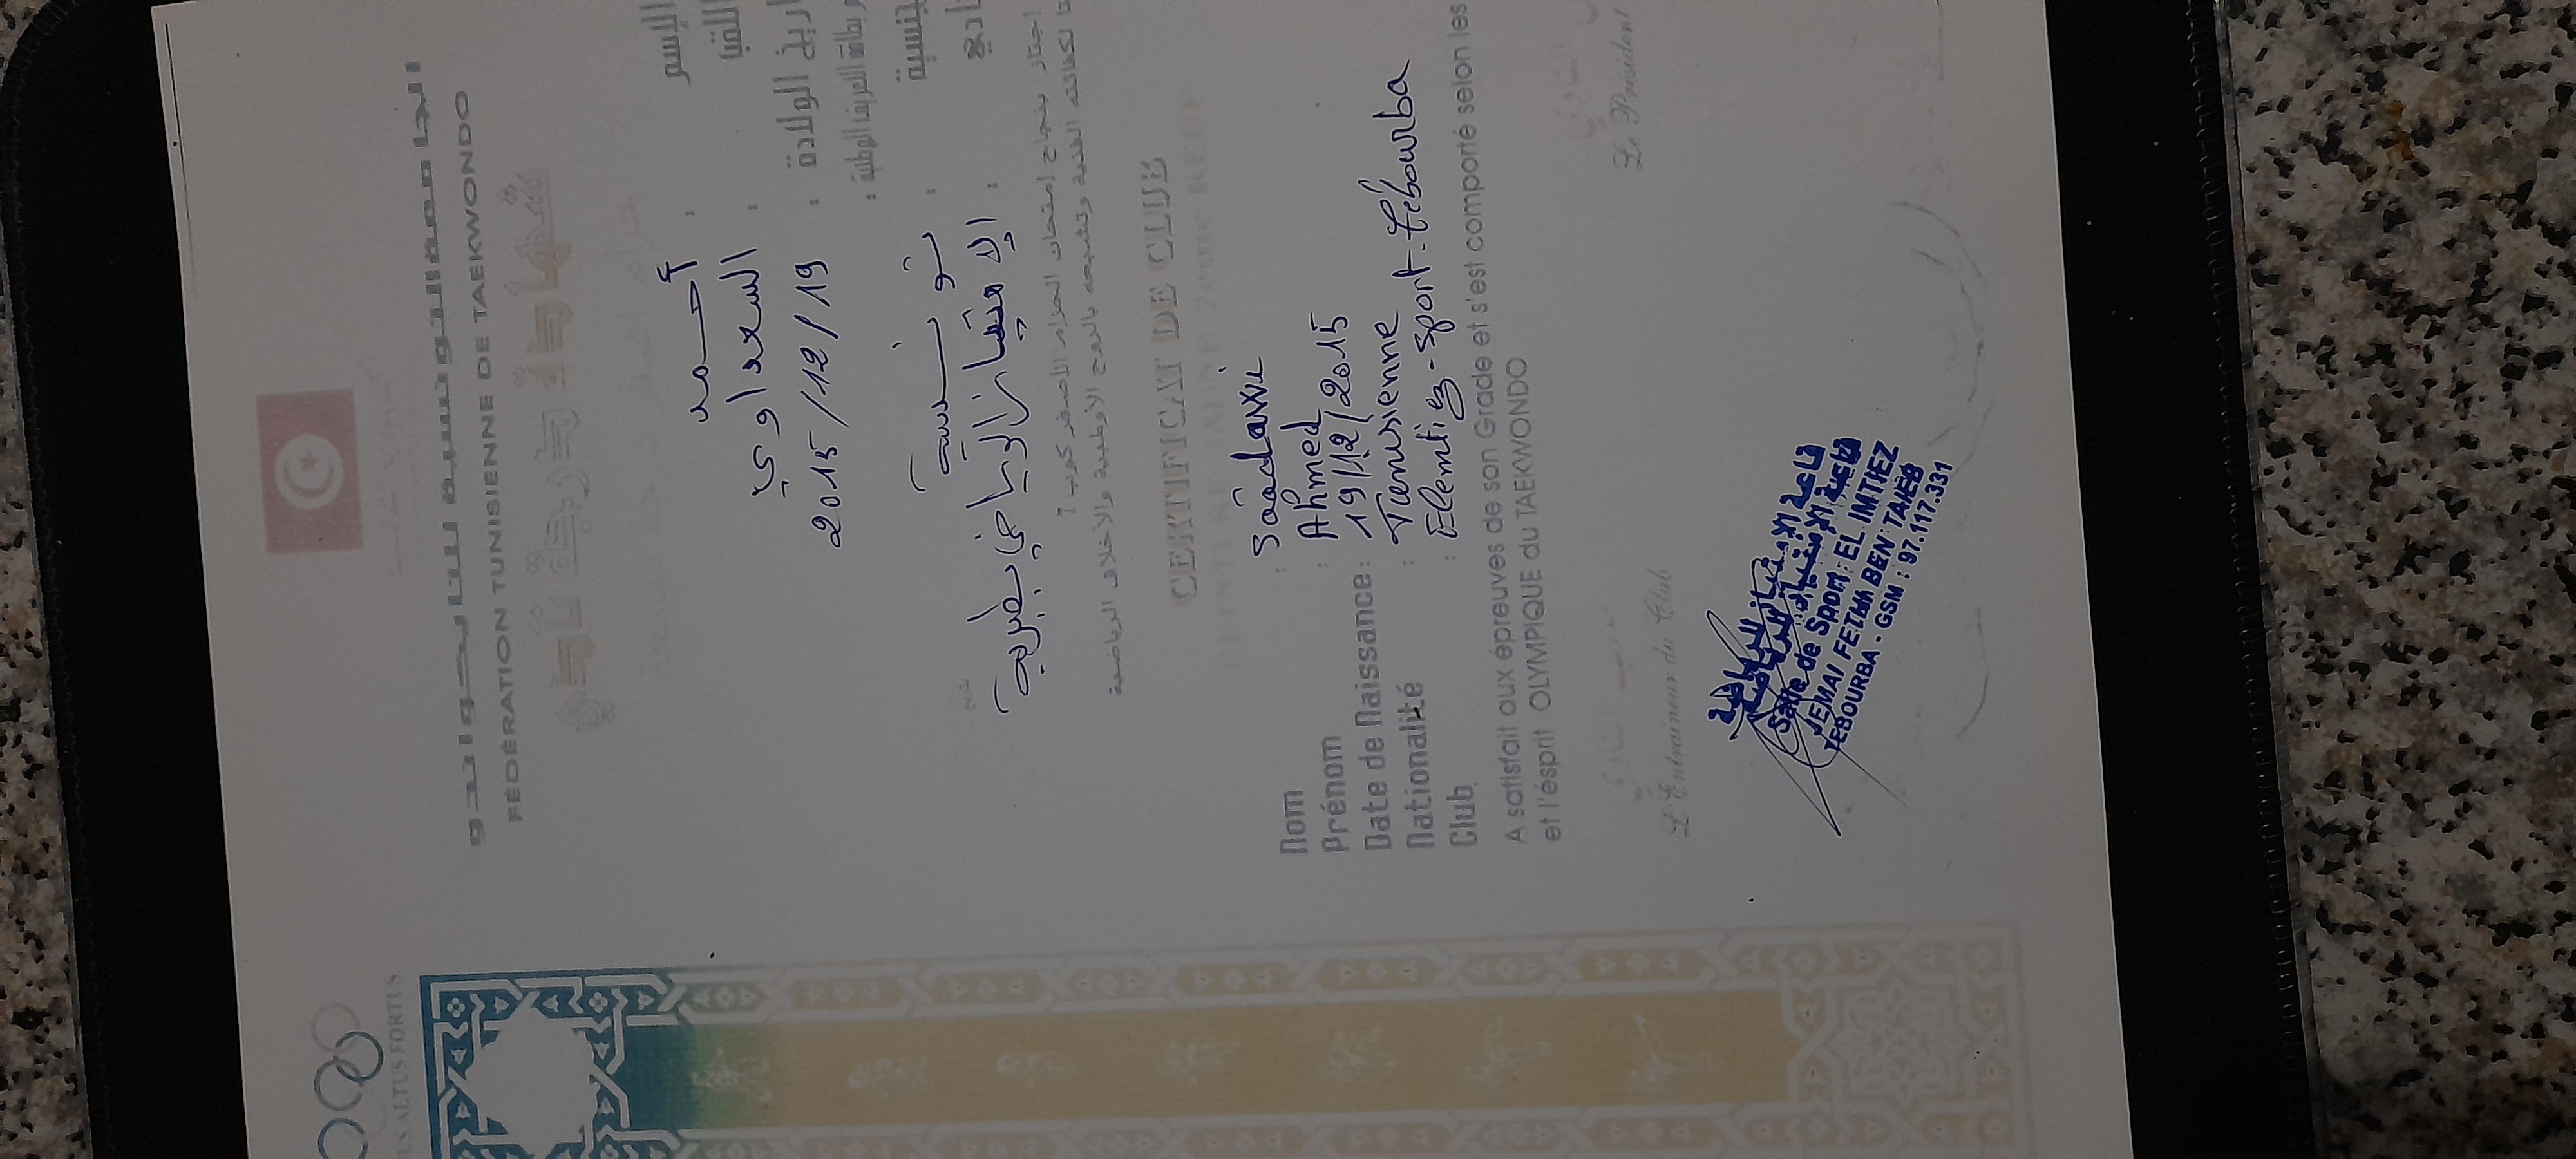 الجامعة التونسية للتايكواندو
FÉDÉRATION TUNISIENNE DE TAEKWONDO
شهادة درجة نادي
الإسم : أحمد
اللقب : السعداوي
تاريخ الولادة : 2015/12/19
بطاقة التعريف الوطنية :
الجنسية : تونسية
نادي : الإمتياز الرياضي بطبربة
اجتاز بنجاح إمتحان الحزام الأصفر كوب 7
لكفائته الفنية وتشبعه بالروح الأولمبية والأخلاق الرياضية
CERTIFICAT DE CLUB
CEINTURE JAUNE 7ème KEUP
Nom : Saadaoui
Prénom : Ahmed
Date de Naissance : 19/12/2015
Nationalité : Tunisienne
Club : Elemtiez-Sport-Tébourba
A satisfait aux épreuves de son Grade et s'est comporté selon les
et l'ésprit OLYMPIQUE du TAEKWONDO
L'Entraineur du Club
Le Président
Salle de Sport : EL IMTIEZ
JEMAI FETHI BEN TAIEB
TEBOURBA - GSM : 97.117.331
ALTUS FORTIUS